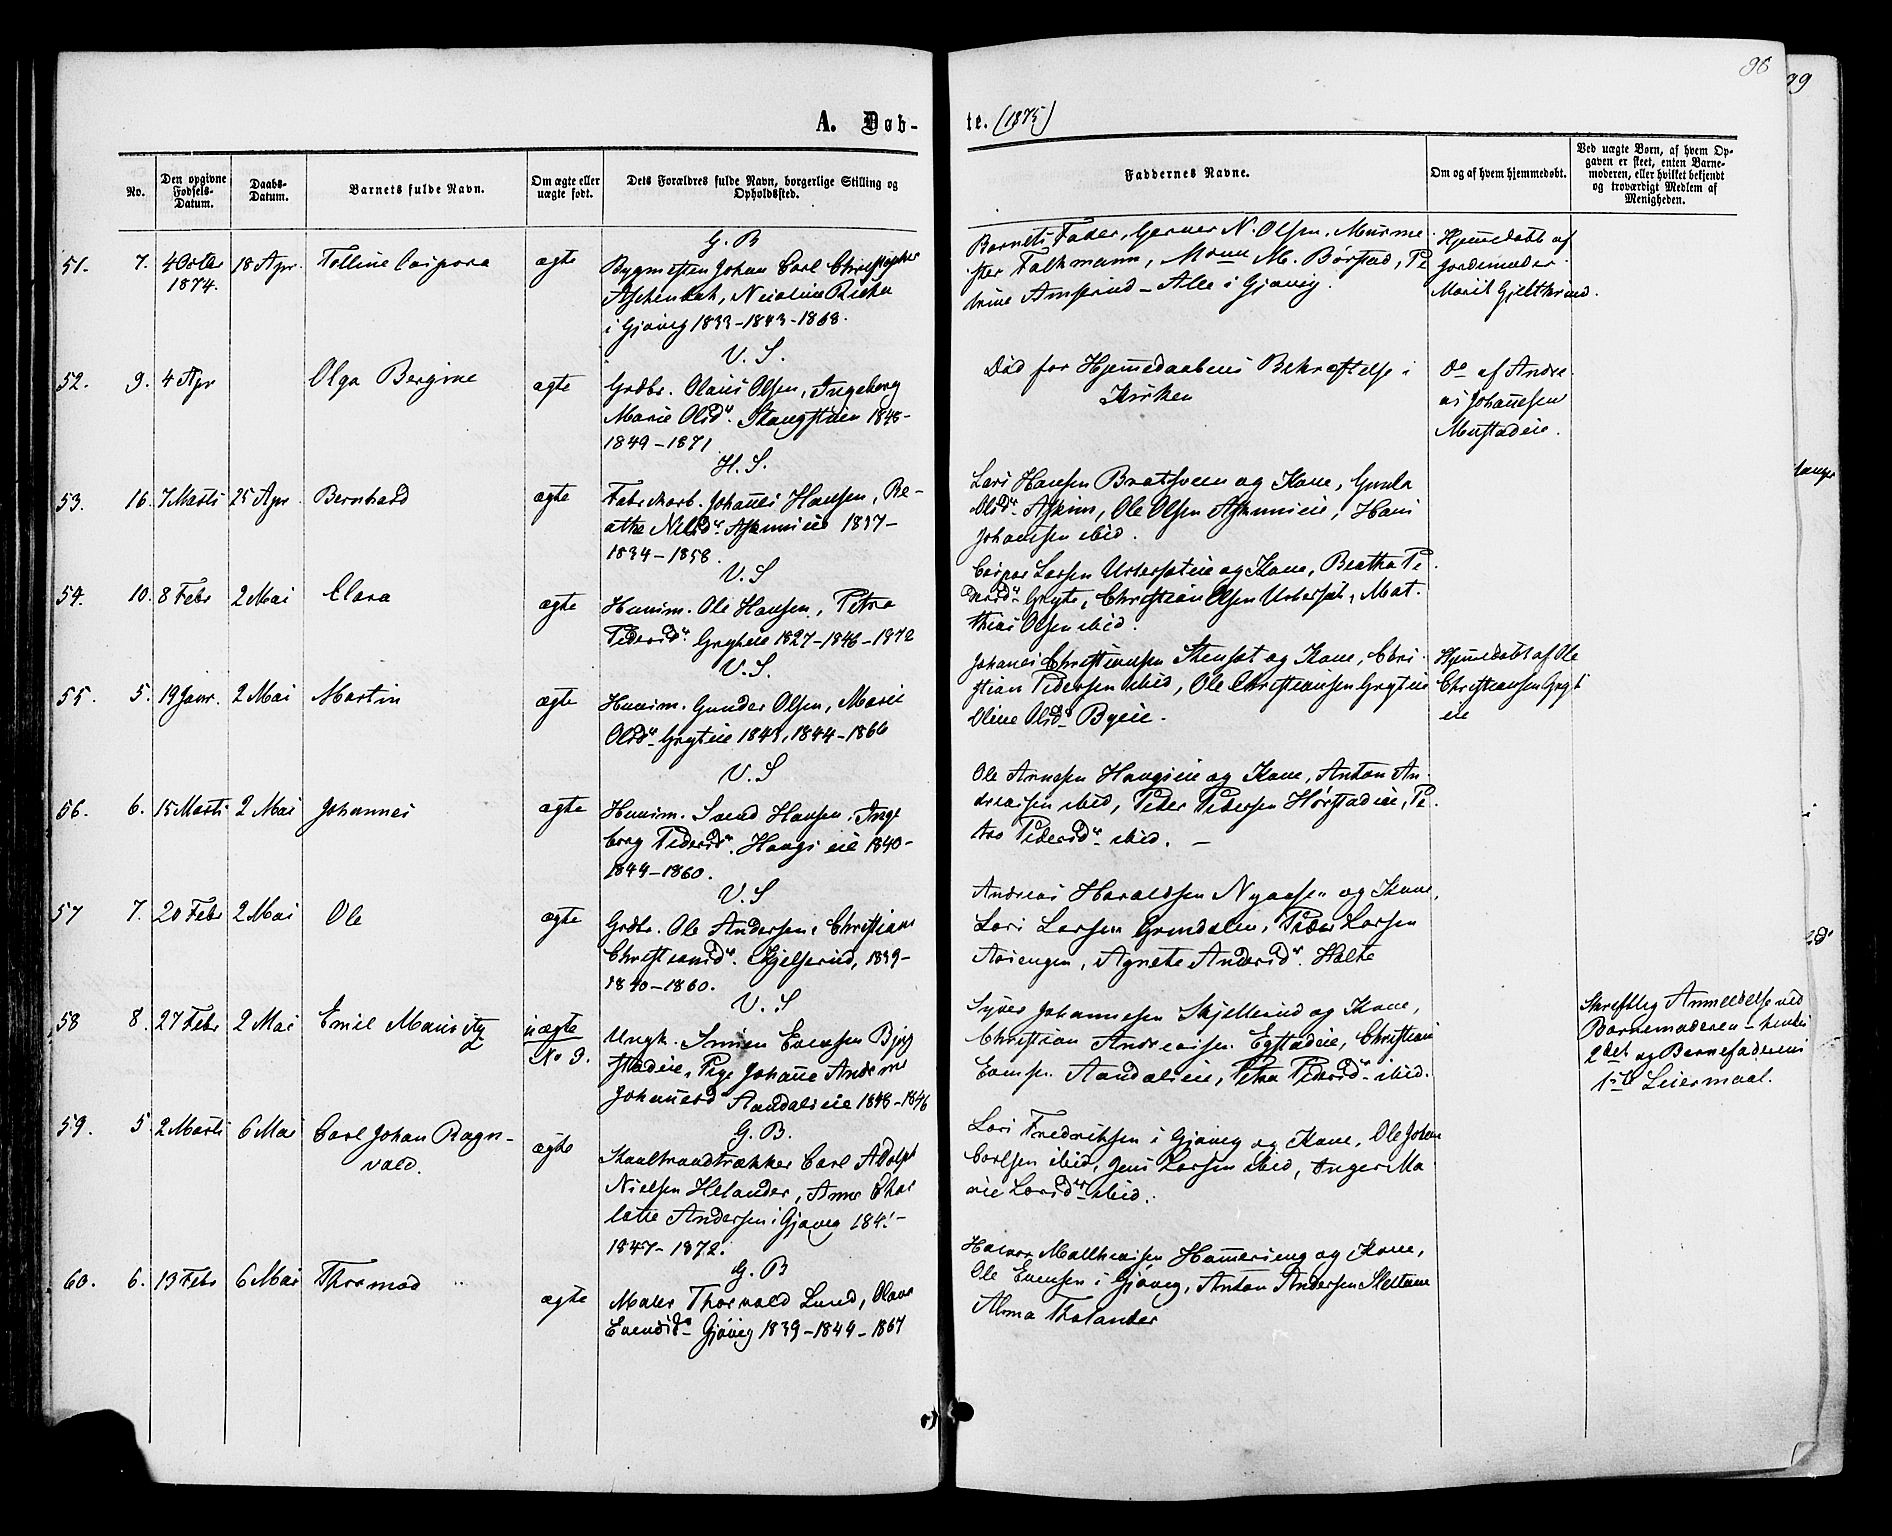 96
99
A. Døb-
te. (1875)
No.
Den opgivne
Fødsels-
Datum.
Daabs-
Datum.
Barnets fulde Navn.
Om ægte eller
uægte født.
Dets Forældres fulde Navn, borgerlige Stilling og
Opholdssted.
Faddernes Navne.
Om og af hvem hjemmedøbt.
Ved uægte Børn, af hvem Op-
gaven er skeet, enten Barne-
moderen, eller hvilket bekjendt
og troværdigt Medlem af
Menigheden.
51. 7. 4 Octbr
1874.
18 Apr.
Talline Caspara
ægte
G. B
Bygmesten Johan Carl Christopher
Aschenbak, Nicoline
i Gjøvig 1833-1843-1868.
Barnets Fader, Garver N. Olsen, Murme
ster Falkmann, M. Børstad, Pe
trine - Alle i Gjøvig.
Hjemmedøbt af
Jordemoder
Marit
52. 9. 4 Apr
Olga Bergine
ægte
V. S.
Grdbr. Olaus Olsen, Ingeborg
Marie Olsdr. Stangstuen 1848-
1849-1871
Død for Hjemmedaabens Bekræftelse i
Kirken
Do af Andre
as Johannesen
Mustadeie.
53. 16. 7 Marts 25 Apr
Bernhard
ægte
H. S.
Fabrikarb. Johannes Hansen, Be-
athe Nilsdr. Askimeie 1837-
1834-1858.
Lars Hansen Bratsveen og Kone, Gunla
Olsdr. Askim, Ole Olsen Askimeie, Hans
Johansen ibid.
54. 10. 8 Febr 2 Mai
Clara
ægte
V. S
Huusm. Ole Hansen, Petra
Pedersdr. Gryteie 1827-1846-1872
Caspar Larsen og Kone, Beathe Pe
dersdr Gryte, Christian Olsen, Mat-
thias Olsen ibid.
55. 5. 19 Janr. 2 Mai
Martin
ægte
V. S.
Huusm. Gunder Olsen, Marie
Olsdr Gryteie 1843, 1844-1866
Johannes Christiansen Stensøt og Kone, Chri-
stian Pedersen ibid, Ole Christiansen Gryteie
Oline Olsdr Byeie.
Hjemmedøbt af Ole
Christiansen Gryt
eie
56. 6. 15 Marts 2 Mai
Johannes
ægte
V. S
Huusm. Svend Hansen, Inge
borg Pedersdr. Haugseie 1840-
1844-1860.
Ole Arnesen Haugseie og Kone, Anton An-
dreasen ibid, Peder Pedersen Hørstadeie, Pe-
tra Pedersdr ibid. —
57 7. 20 Febr 2 Mai
Ole
ægte
V. S
Grdbr. Ole Andersen, Christiane
Christiansdr. Skjelserud, 1839-
1840-1860.
Andreas Haraldsen Nyaasen og Kone,
Lars Larsen Grundalen, Peder Larsen
Aasengen, Agnete Andersdr. Holte
58 8. 27 Febr 2 Mai
Emil Mauritz
uægte
No 9.
V. S
Ungk. Simen Evensen
stadeie, Pige Johanne Andrine
Johannesd Aandalseie 1848-1846
Syver Johannesen Skjellerud og Kone,
Christian Andreassen Egstadeie, Christian
Evensen Aandalseie, Petra Pedersdr ibid.
Skriftlig Anmeldelse ved
Barnemoderen - hendes
2det og Barnefaderens
1ste Leiermaal.
59. 5 2 Marts 6 Mai
Carl Johan Ragn-
vald.
ægte
G. B.
Staaltraadtrækker Carl Adolph
Nielsen Helander, Anne Char
lotte Andersen i Gjøvig 184.-
1847-1872.
Lars Fredriksen i Gjøvig og Kone, Ole Johan
Carlsen ibid, Jens Larsen ibid, Inger Ma-
rie Larsdr ibid.
60. 6. 13 Febr 6 Mai
Thormod
ægte
G. B
Maler Thorvald Lund, Olava
Evensdr Gjøvig 1839-1844-1867
Halvor Matthiasen Hammerseng og Kone,
Ole Evensen i Gjøvig, Anton Andersen
Alma Tholander